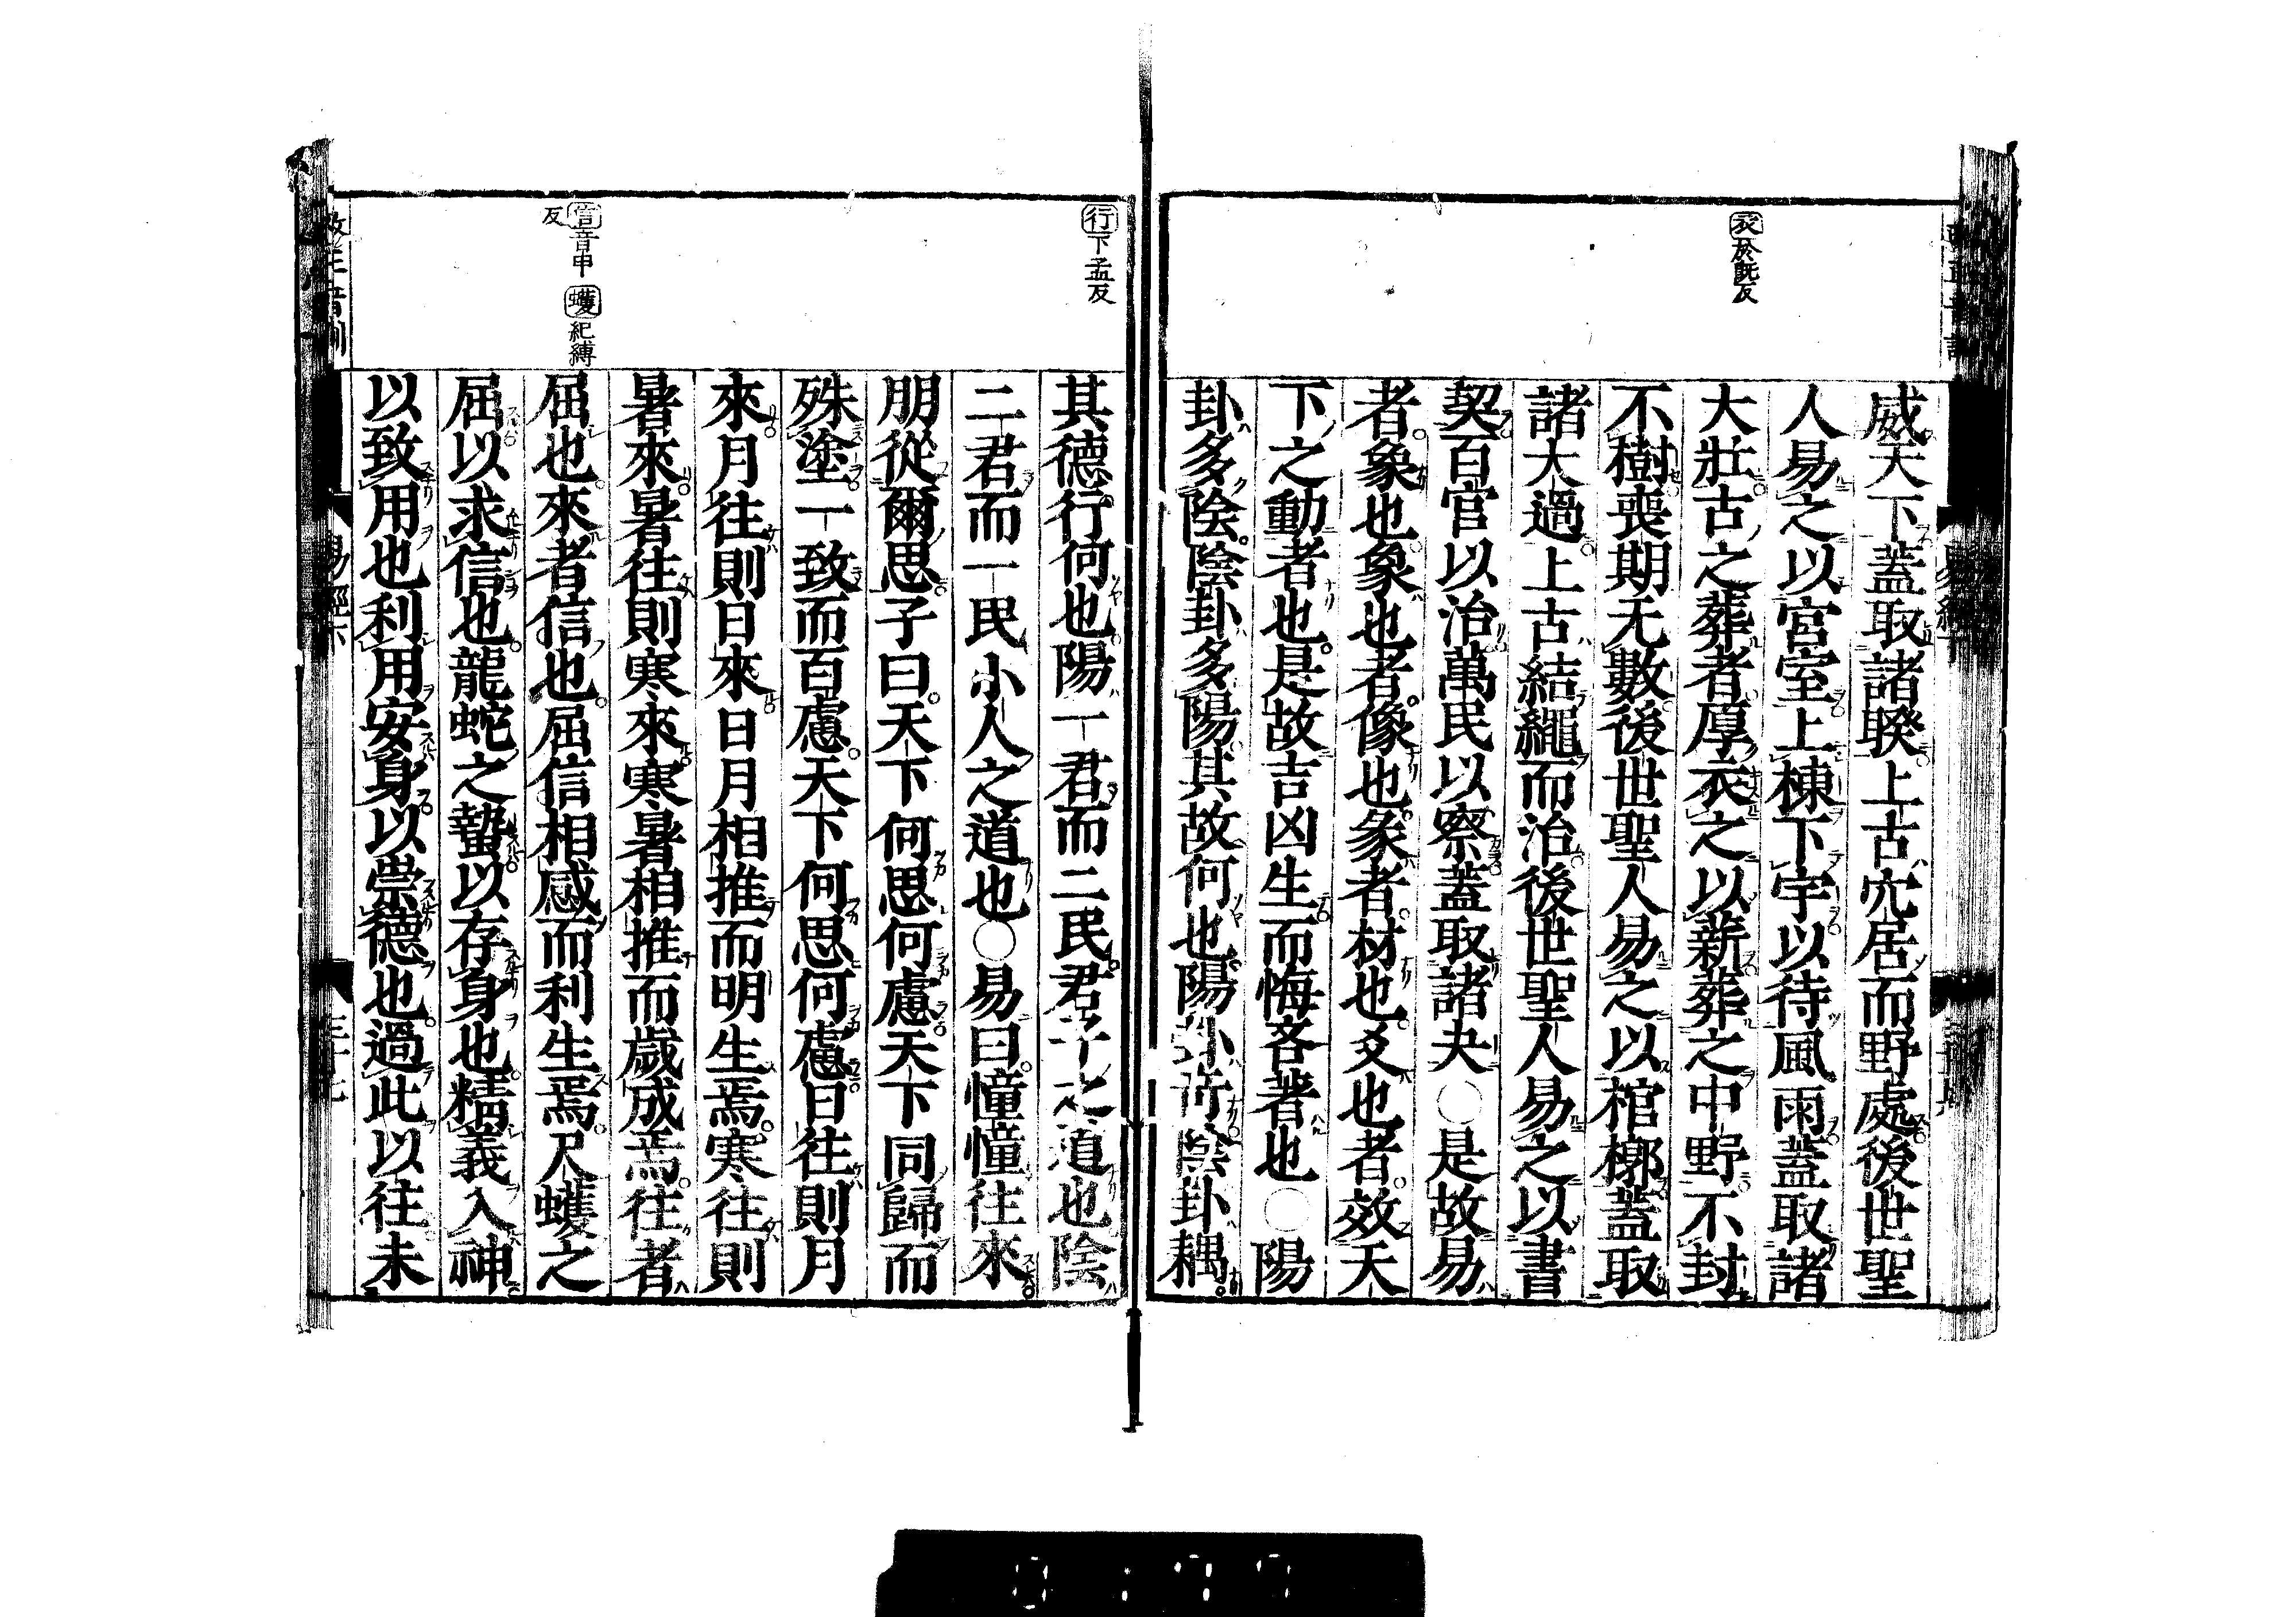 衣於既反
威天下蓋取諸睽上古穴居而野處後世聖
人易之以宮室上棟下宇以待風雨蓋取諸
大壯古之葬者厚衣之以薪葬之中野不封
不樹喪期无數後世聖人易之以棺槨蓋取
諸大過上古結繩而治後世聖人易之以書
契百官以治萬民以察蓋取諸夬○是故易
者象也象也者像也彖者材也爻也者效天
下之動者也是故吉凶生而悔吝著也○陽
卦多陰陰卦多陽其故何也陽卦奇陰卦耦
行下孟反
信音申 蠖紀縛
反
其德行何也陽一君而二民君子之道也陰
二君而一民小人之道也○易曰憧憧往來
朋從爾思子曰天下何思何慮天下同歸而
殊塗一致而百慮天下何思何慮日往則月
來月往則日來日月相推而明生焉寒往則
暑來暑往則寒來寒暑相推而歲成焉往者
屈也來者信也屈信相感而利生焉尺蠖之
屈以求信也龍蛇之蟄以存身也精義入神
以致用也利用安身以崇德也過此以往未
易經下